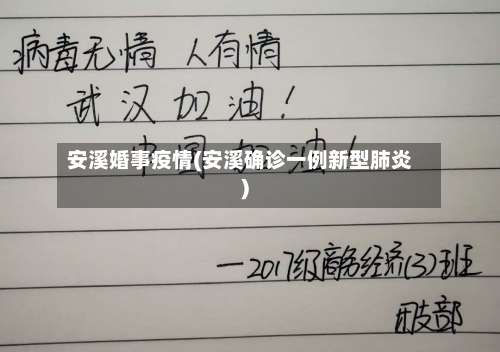 病毒无情 人有情
武汉加油！
中国加油！
安溪婚事疫情(安溪确诊一例新型肺炎
)
一2017级商务经济(3)班
团支部